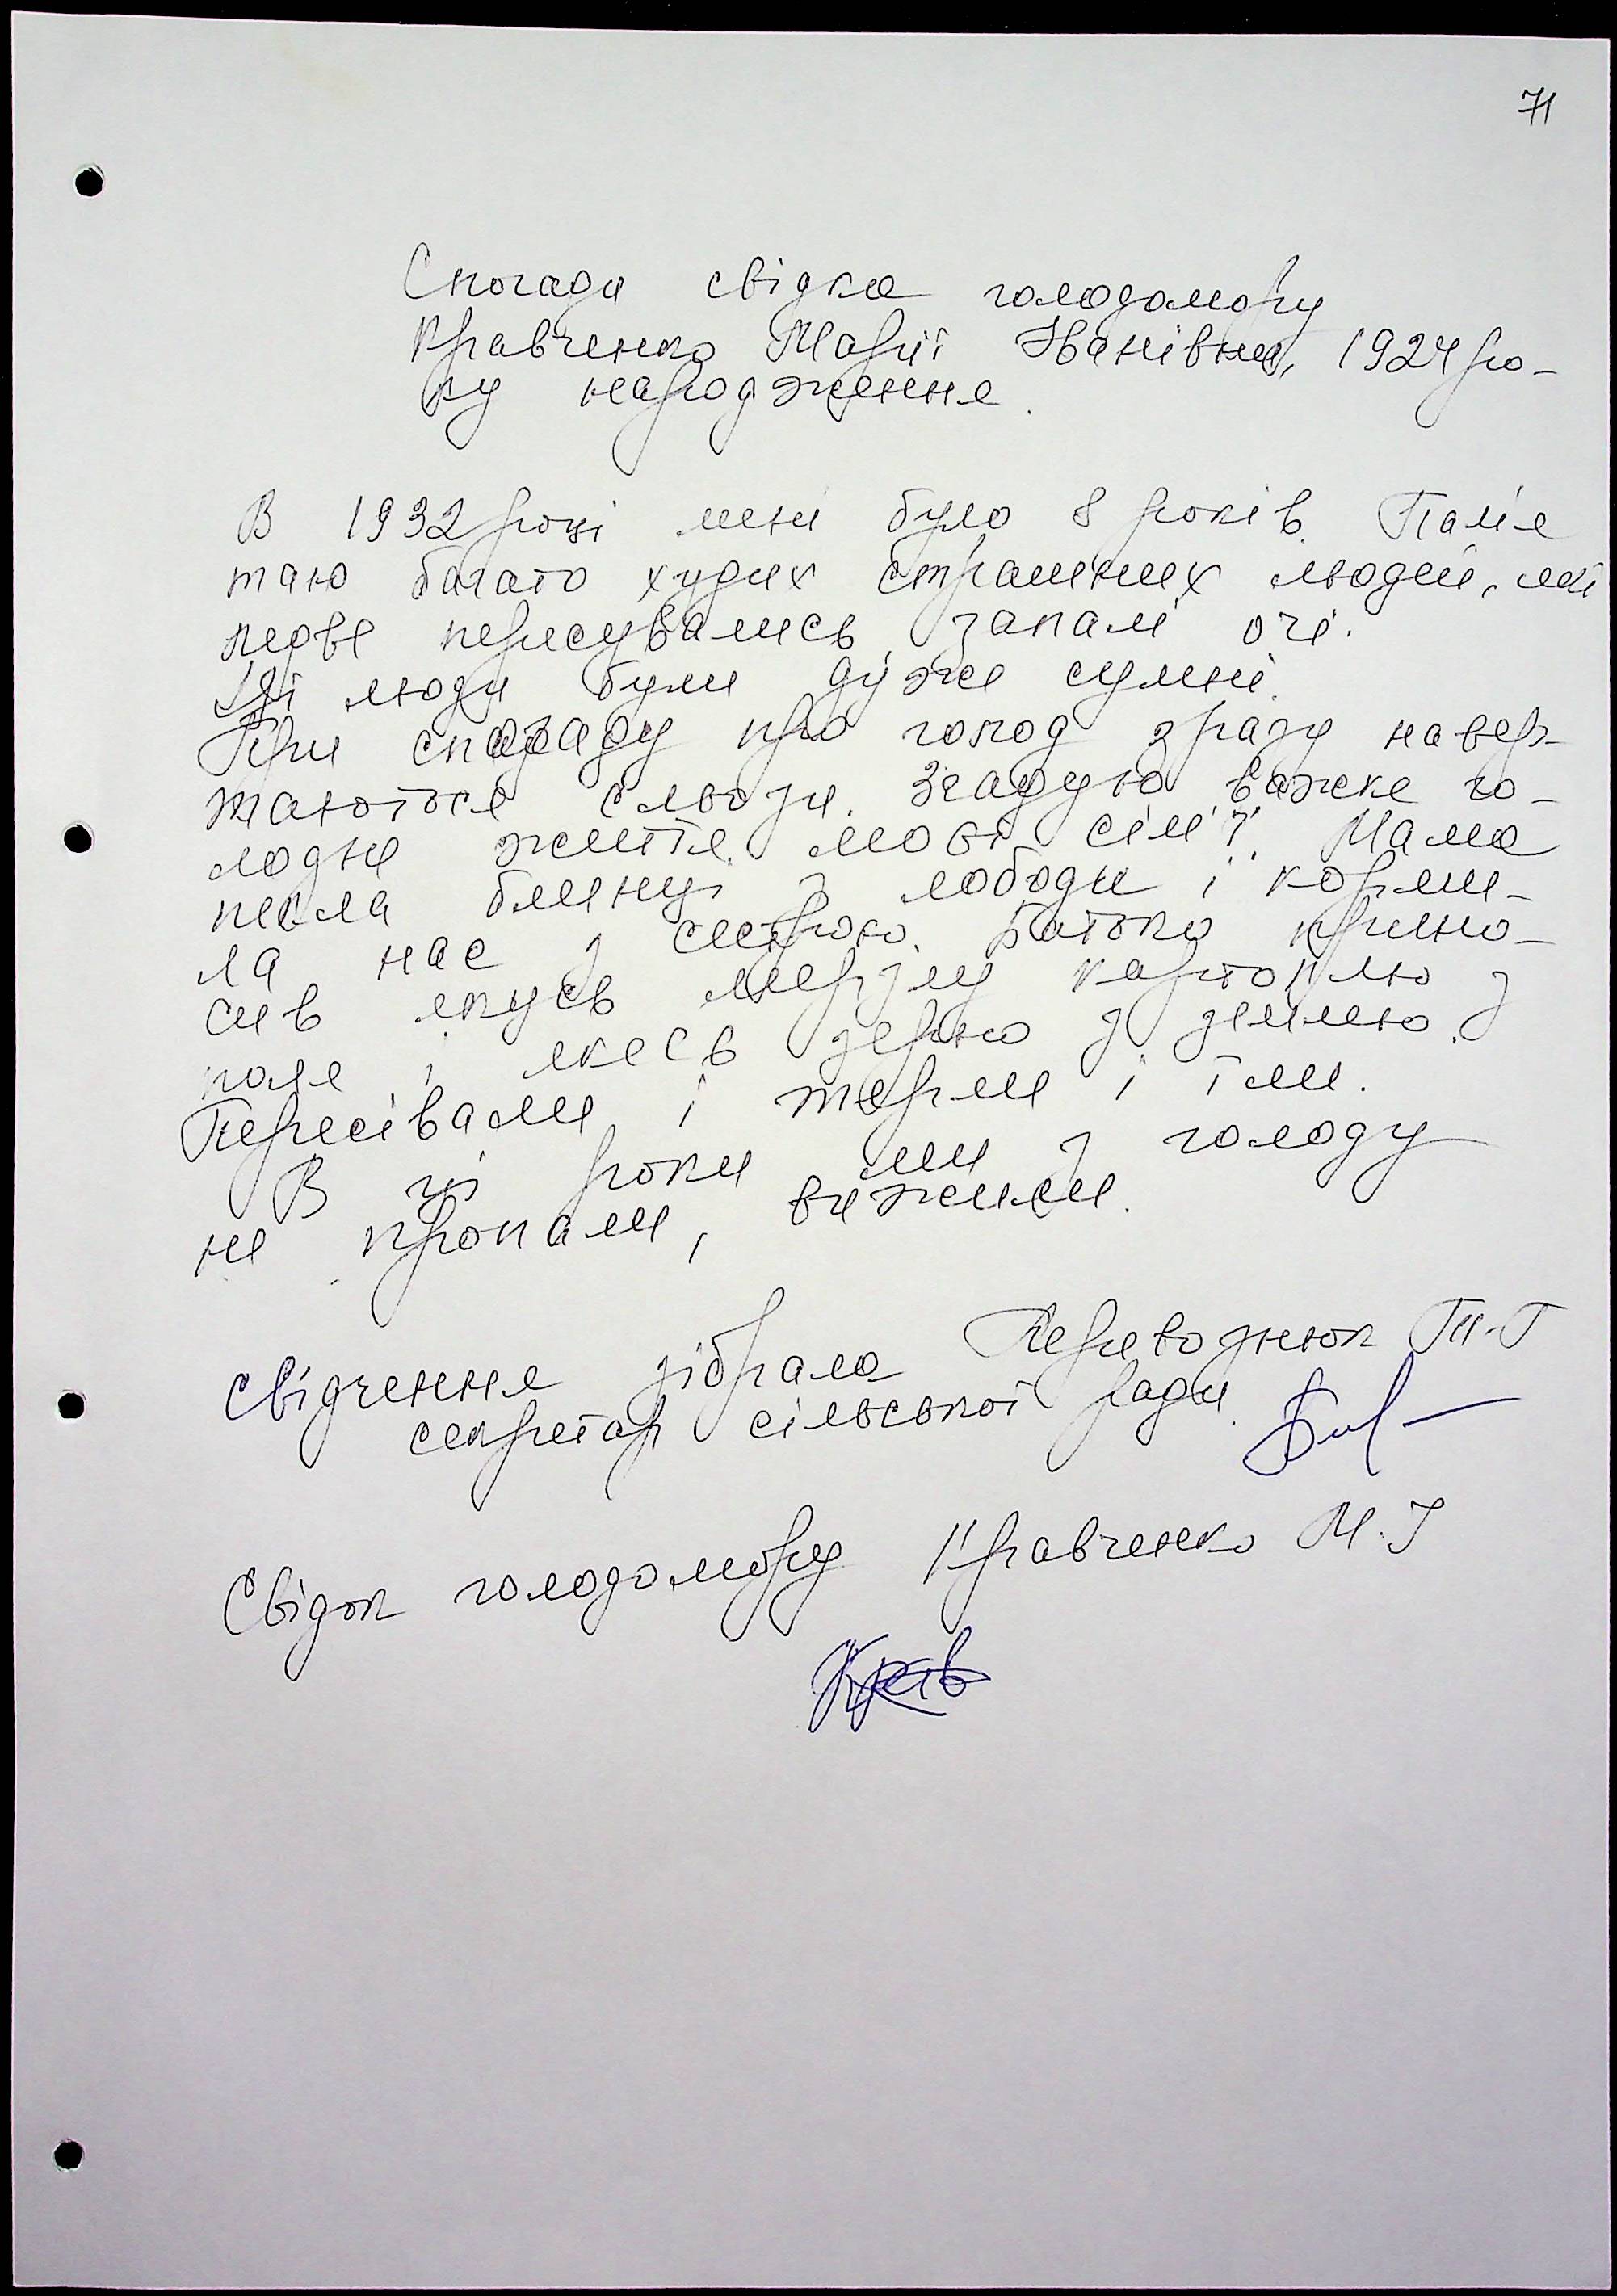 71
Спогади свідка голодомору
Кравченко Марії Іванівна, 1924 ро-
ку народження.
В 1932 році мені було 8 років. Пам'я
таю багато худих страшних людей, які
ледве пересувались, запалі очі.
Ці люди були дуже сумні.
При спогаду про голод зразу навер-
таються сльози. Згадую важке го-
лодне життя моєї сім'ї. Мама
пекла блинці з лободи і корми-
ла нас з сестрою. Батько прино-
сив якусь мерзлу картоплю з
поля і якесь зерно з землею.
Пересівали і терли і їли.
В ці роки ми з голоду
не пропали, вижили.
Свідчення зібрала Переводнюк Т.Г
секретар сільської ради.
Свідок голодомору Кравченко М.І
Крав